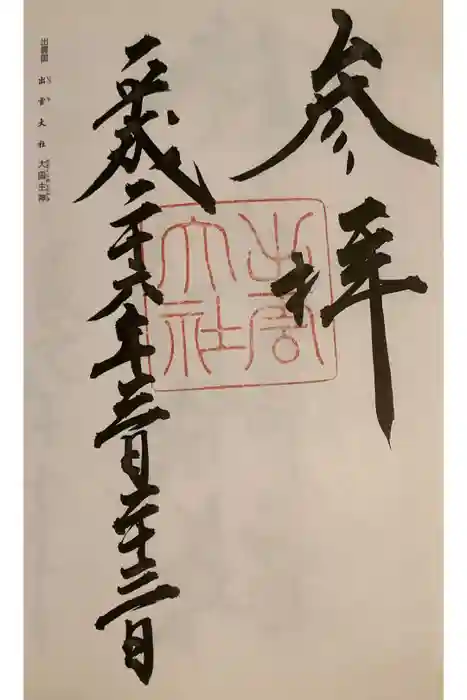 参拝
出雲
大社
平成二十六年三月二十三日
出雲国 出雲大社 大国主神